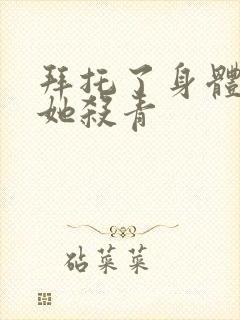 拜托了身體
她殺青
砧菜菜